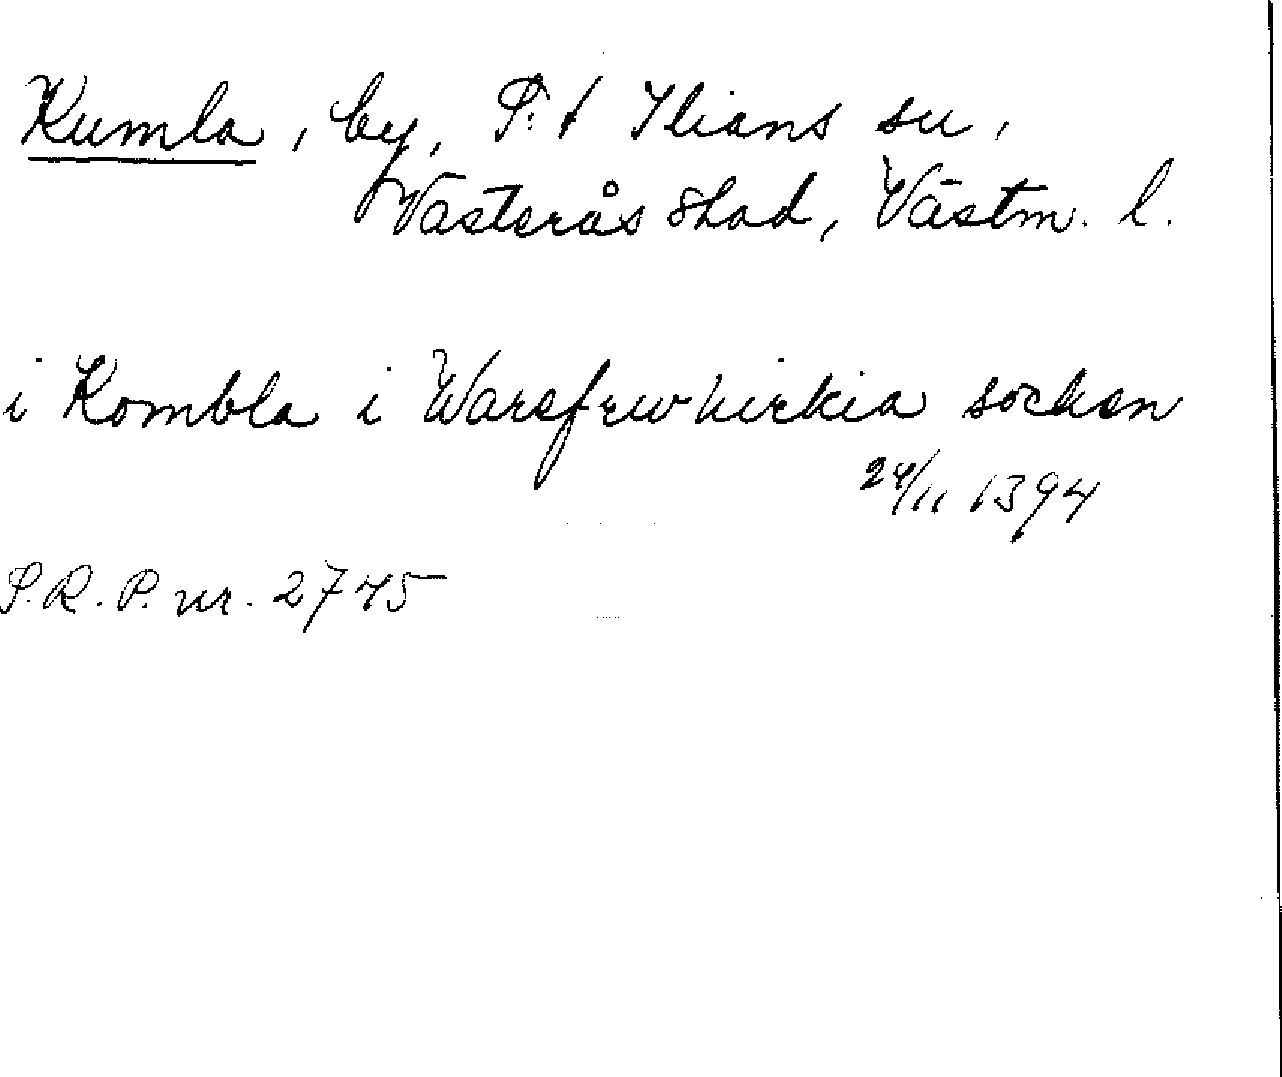 Kumla, by, S:t Ilians sn,
Västerås stad, Västm. l.
i Kombla i Warefrwkirkia socken
24/11 1394
S.R.P. nr. 2745